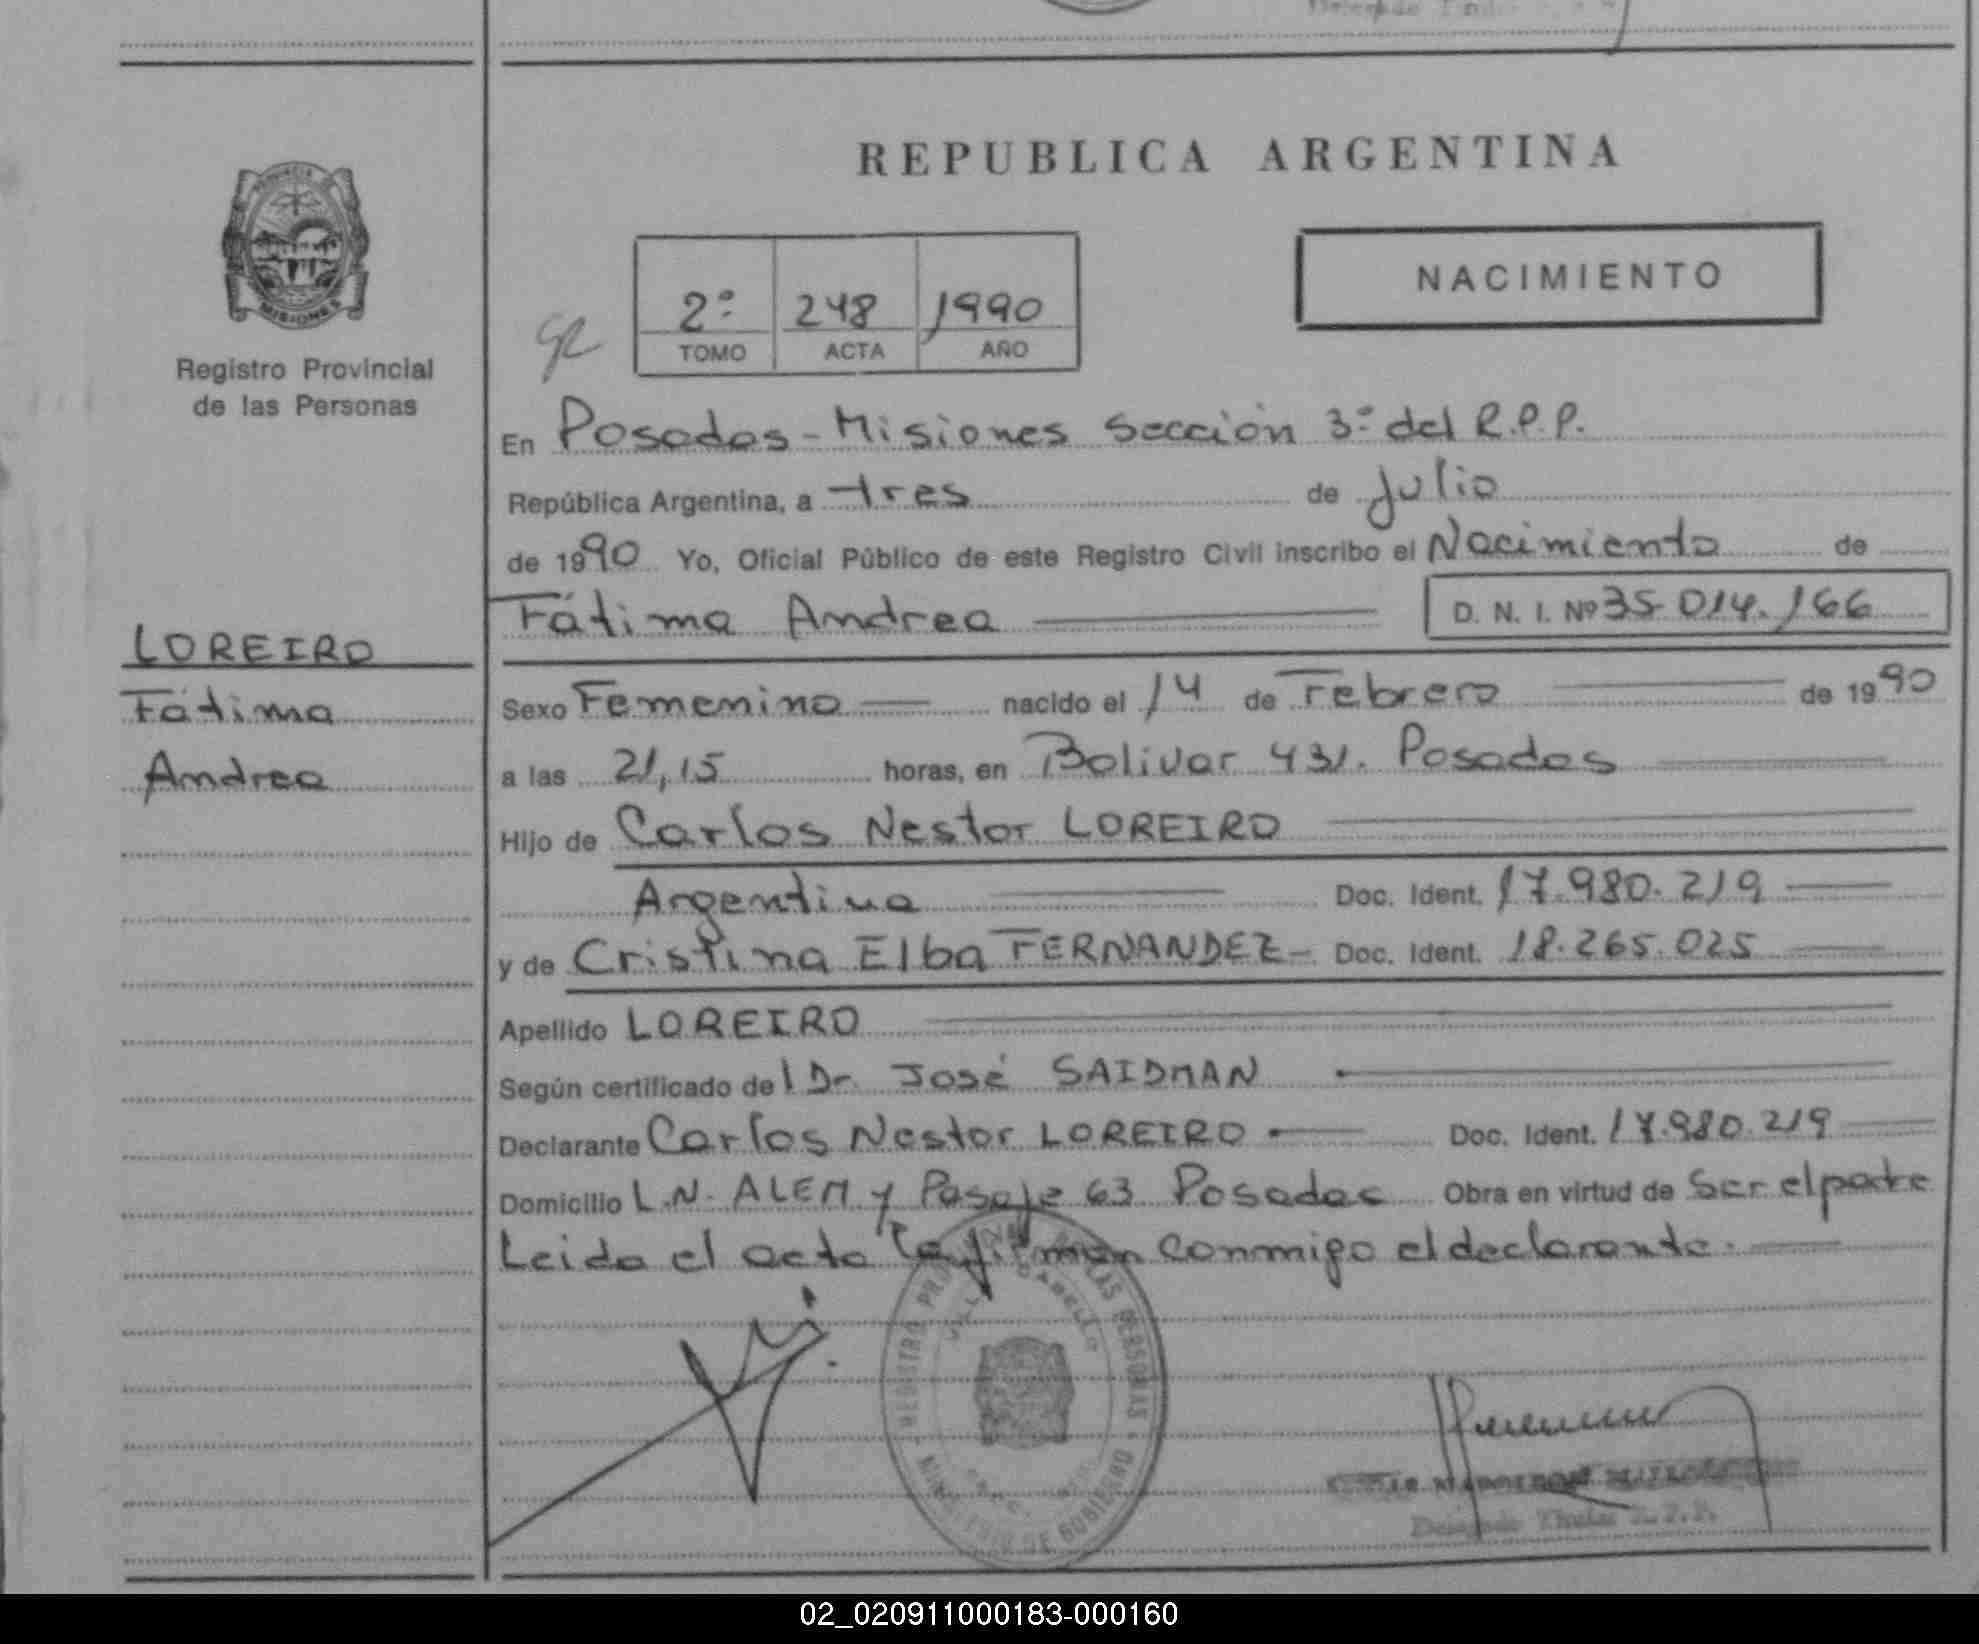 REPUBLICA ARGENTINA
NACIMIENTO
2º 248 1990
TOMO ACTA AÑO
MISIONES
Registro Provincial
de las Personas
En Posadas - Misiones Sección 3º del R.P.P.
República Argentina, a tres de Julio
de 1990 Yo, Oficial Público de este Registro Civil inscribo el Nacimiento de
Fátima Andrea
D. N. I. Nº 35.014.166
LOREIRO
Fátima
Andrea
Sexo Femenino nacido el 14 de Febrero de 1990
a las 21,15 horas, en Bolivar 431. Posadas
Hijo de Carlos Nestor LOREIRO
Argentina Doc. Ident. 17.980.219
y de Cristina Elba FERNANDEZ - Doc. Ident. 18.265.025
Apellido LOREIRO
Según certificado del Dr. José SAIDMAN
Declarante Carlos Nestor LOREIRO Doc. Ident. 17.980.219
Domicilio L.N. ALEM y Pasaje 63 Posadas Obra en virtud de Ser el padre
Leida el acta la firman conmigo el declarante.
REGISTRO DE LAS PERSONAS
MINISTERIO DE GOBIERNO
Delegado Titular R.P.P.
02_020911000183-000160